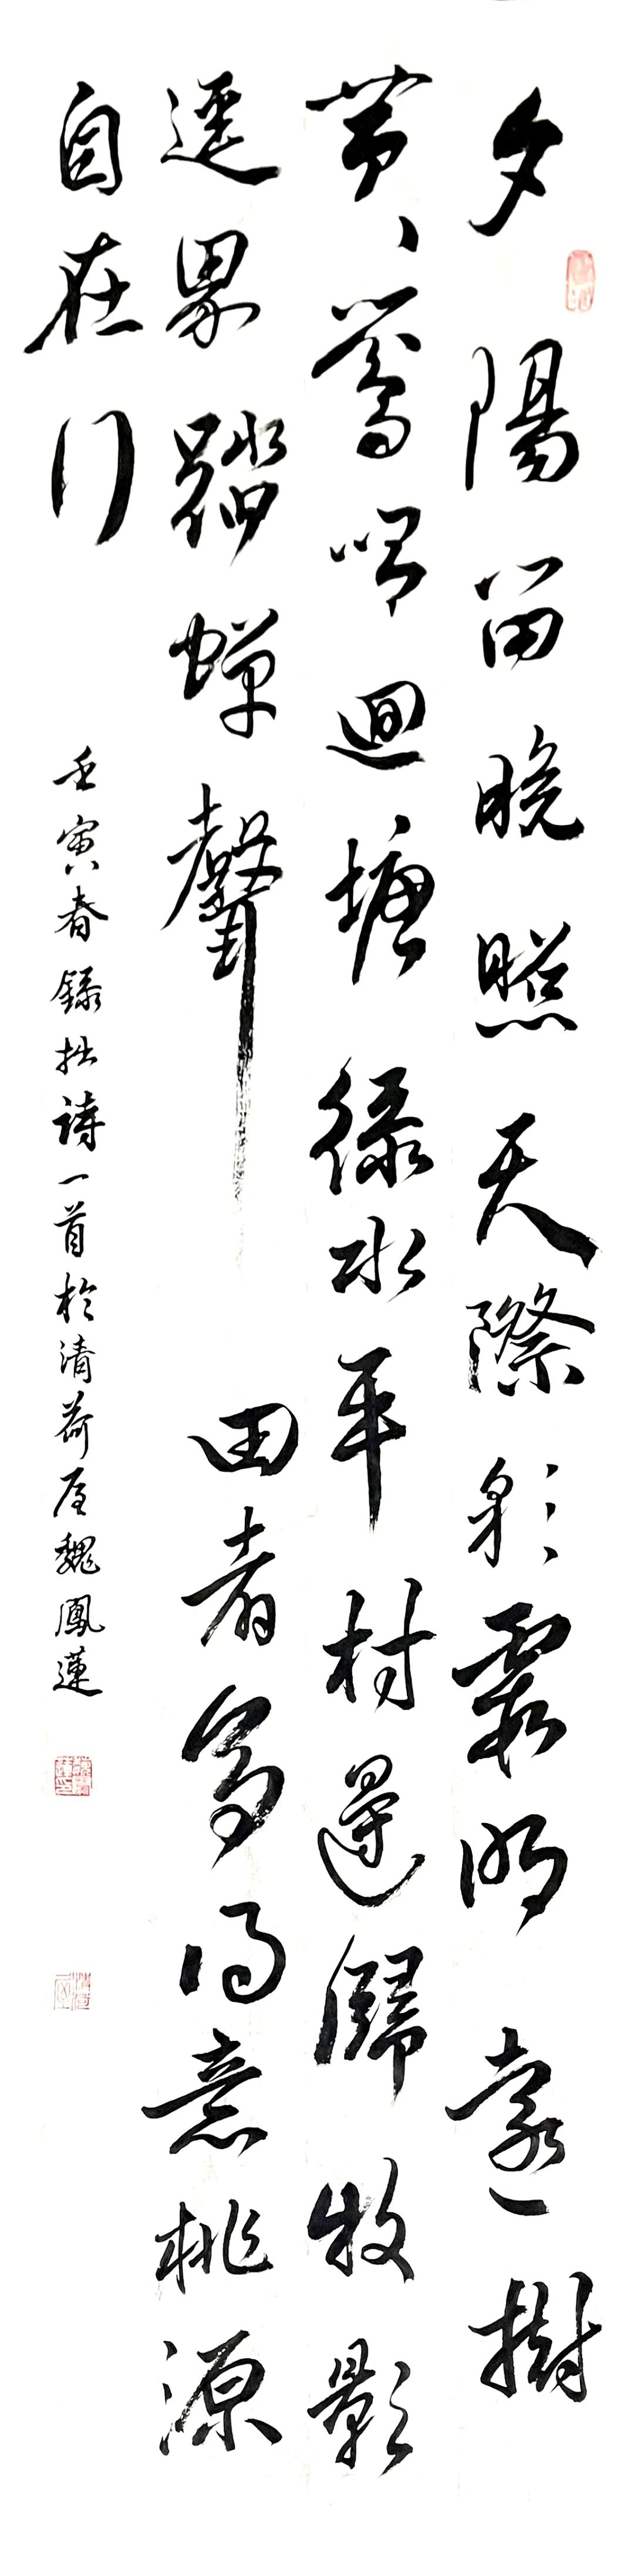 夕陽留晚照天際彩霞明遠樹
鶯啼迴塘綠水平村邊歸牧影
界踏蟬聲田者得意桃源
自在行
壬寅春錄拙詩一首於清荷屋魏鳳蓮